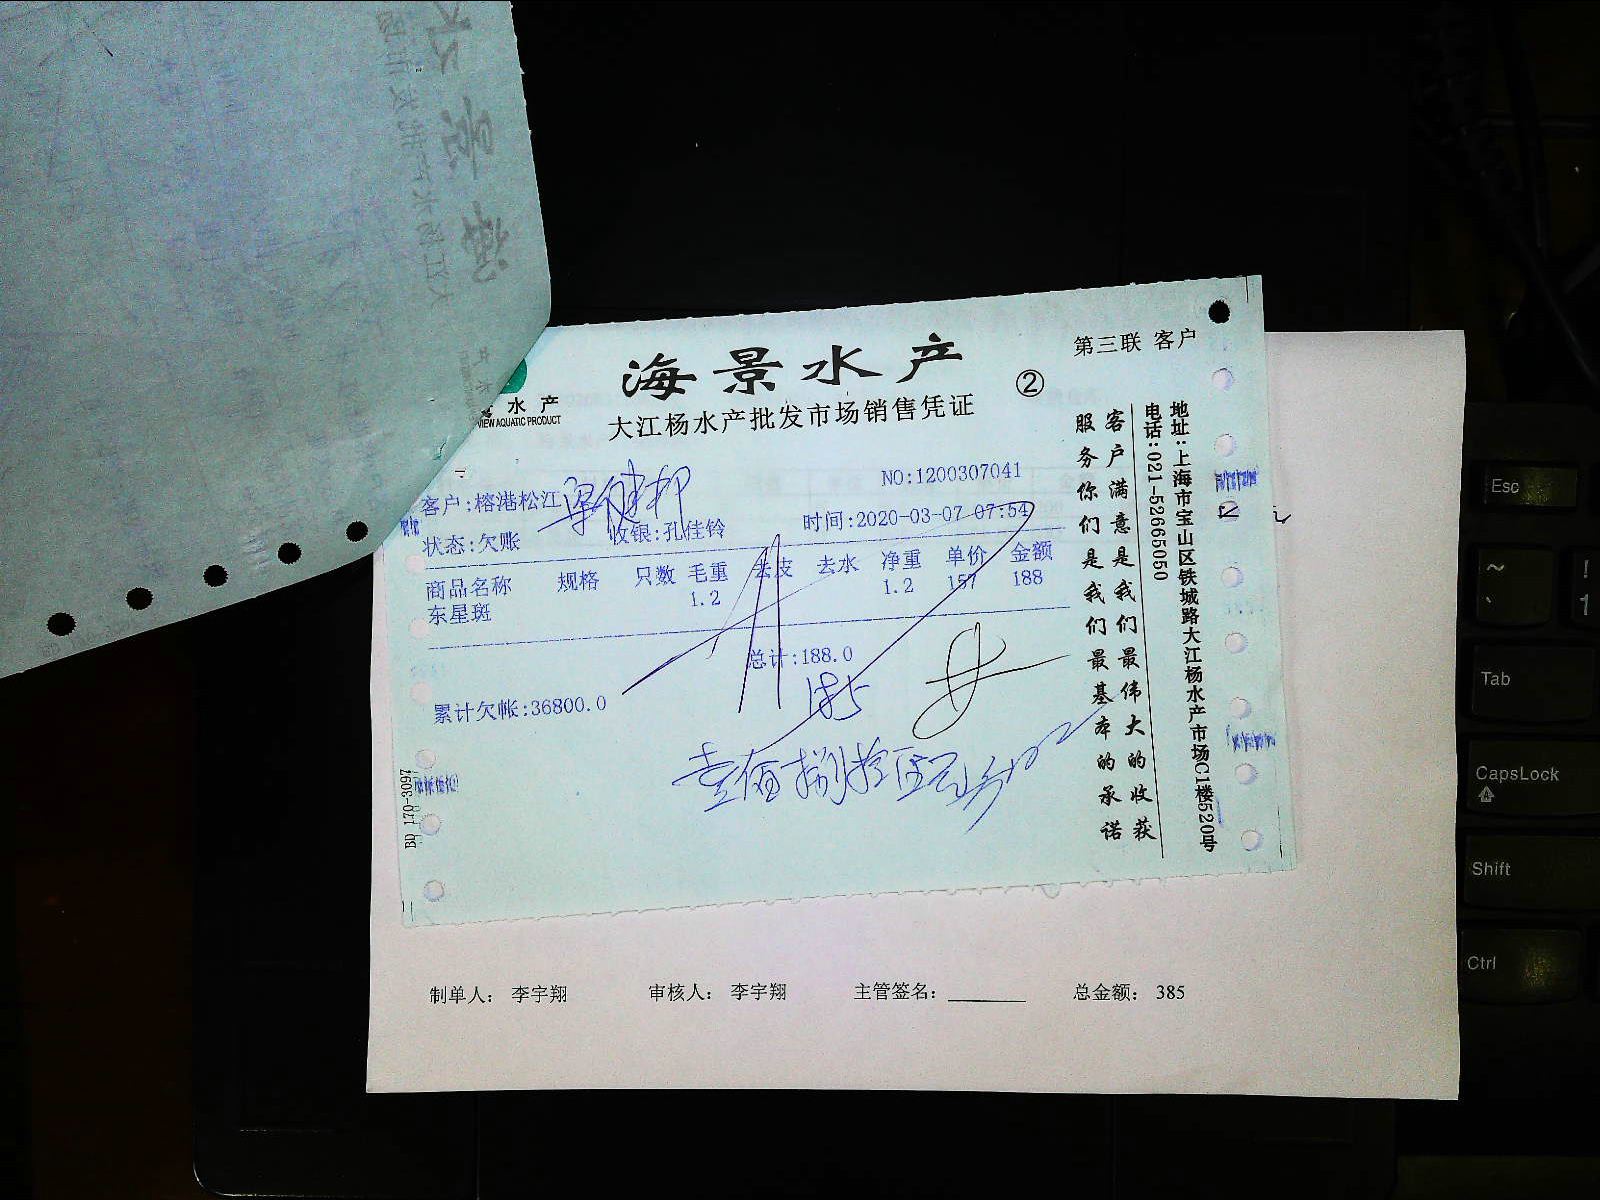 海景水产
第三联 客户
②
水产
VIEW AQUATIC PRODUCT
大江杨水产批发市场销售凭证
NO:1200307041
客户:榕港松江
时间:2020-03-07 07:54
状态:欠账 收银:孔佳铃
商品名称 规格 只数 毛重 去皮 去水 净重 单价 金额
东星斑 1.2 1.2 157 188
总计:188.0
累计欠帐:36800.0
185
壹佰捌拾伍元
客户满意是我们最伟大的收获
服务你们是我们最基本的承诺
地址:上海市宝山区铁城路大江杨水产市场C1楼520号
电话:021-52665050
BD 170-3097
制单人: 李宇翔 审核人: 李宇翔 主管签名: 总金额: 385
Esc
~
`
!
1
Tab
CapsLock
Shift
Ctrl